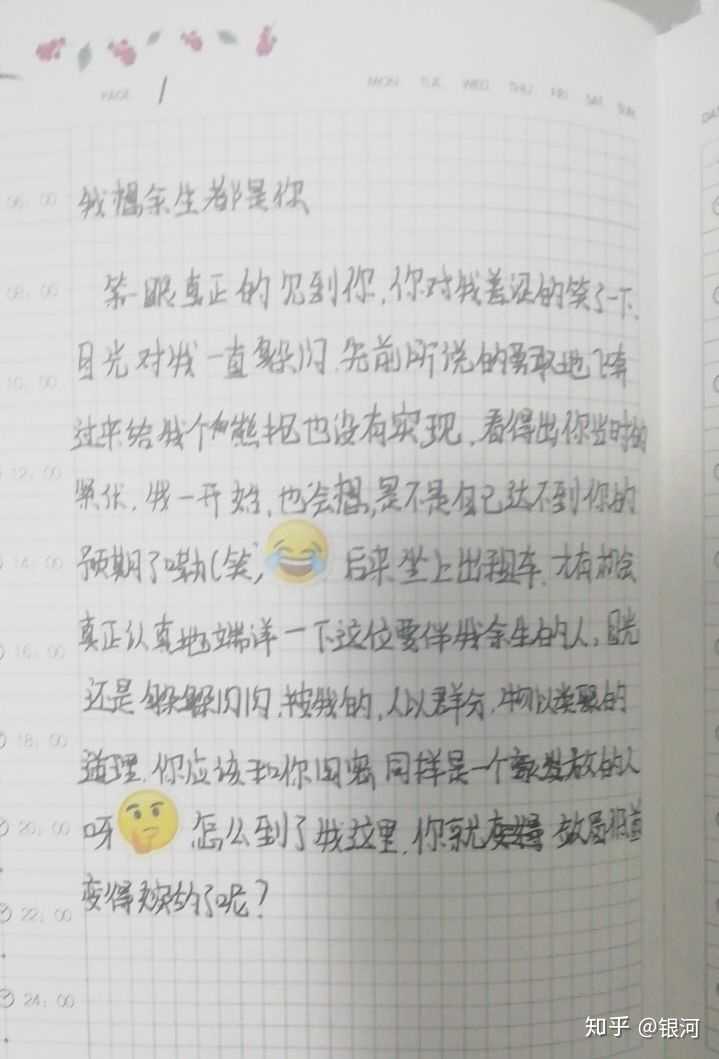 PAGE 1
MON TUE WED THU FRI SAT SUN
06:00
我想余生都是你
08:00
第一眼真正的见到你,你对我羞涩的笑了一下,
目光对我一直躲闪,先前所说的要飞奔
10:00
过来给我个熊抱也没有实现,看得出你当时的
12:00
紧张,我一开始,也会想,是不是自己达不到你的
14:00
预期了嘞(笑)😂后来坐上出租车,才有机会
16:00
真正认真地端详一下这位要伴我余生的人,目光
还是躲躲闪闪,按我的,人以群分,物以类聚的
18:00
道理,你应该和你闺密同样是一个放的人
20:00
呀🤔怎么到了我这里,你就
22:00
变得了呢?
24:00
知乎 @银河